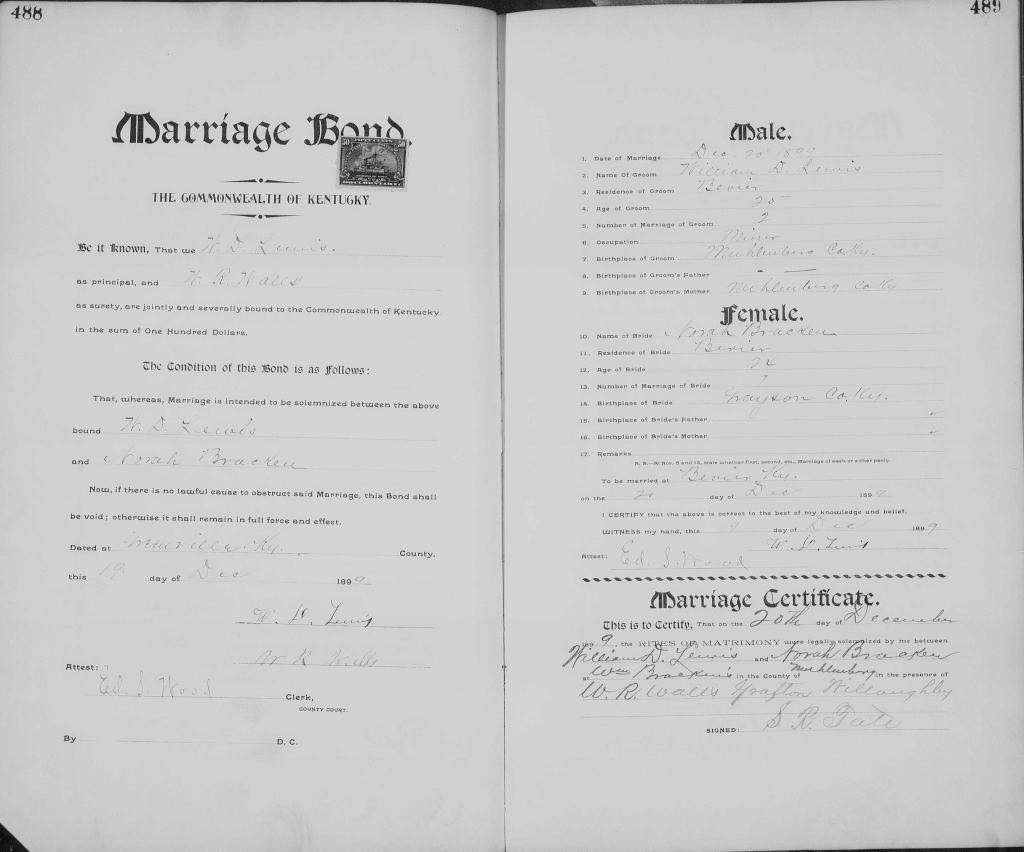 488
Marriage Bond.
50 FIFTY CENTS 50
DOCUMENTARY
THE COMMONWEALTH OF KENTUCKY.
Be it known, That we W. D. Lewis.
as principal, and W. R. Walls
as surety, are jointly and severally bound to the Commonwealth of Kentucky
in the sum of One Hundred Dollars.
The Condition of this Bond is as follows:
That, whereas, Marriage is intended to be solemnized between the above
bound W. D. Lewis
and Norah Bracken
Now, if there is no lawful cause to obstruct said Marriage, this Bond shall
be void; otherwise it shall remain in full force and effect.
Dated at Greenville Ky. County,
this 19 day of Dec 1899
W. D. Lewis
W R Walls
Attest:
Ed. S. Wood Clerk,
COUNTY COURT.
By D. C.
489
Male.
1. Date of Marriage Dec. 20 1899
2. Name Of Groom William D. Lewis
3. Residence of Groom Bevier
4. Age of Groom 25
5. Number of Marriage of Groom 2
6. Occupation Miner
7. Birthplace of Groom Muhlenburg Co. Ky.
8. Birthplace of Groom's Father
9. Birthplace of Groom's Mother Muhlenburg Co Ky
Female.
10. Name of Bride Norah Bracken
11. Residence of Bride Bevier
12. Age of Bride 24
13. Number of Marriage of Bride
14. Birthplace of Bride Grayson Co. Ky.
15. Birthplace of Bride's Father "
16. Birthplace of Bride's Mother "
17. Remarks
N. B.—At Nos. 5 and 13, state whether first, second, etc., Marriage of each or either party.
To be married at Bevier Ky.
on the 20 day of Dec 1899
I CERTIFY that the above is correct to the best of my knowledge and belief.
WITNESS my hand, this 9 day of Dec 1899
W. D. Lewis
Attest: Ed. S. Wood
Marriage Certificate.
This is to Certify, That on the 20th day of December
1899, the RITES OF MATRIMONY were legally solemnized by me between
William D. Lewis and Norah Bracken
at Wm Bracken's in the County of Muhlenburg in the presence of
W. R. Walls Grafton Willoughby
SIGNED: S. R. Tate